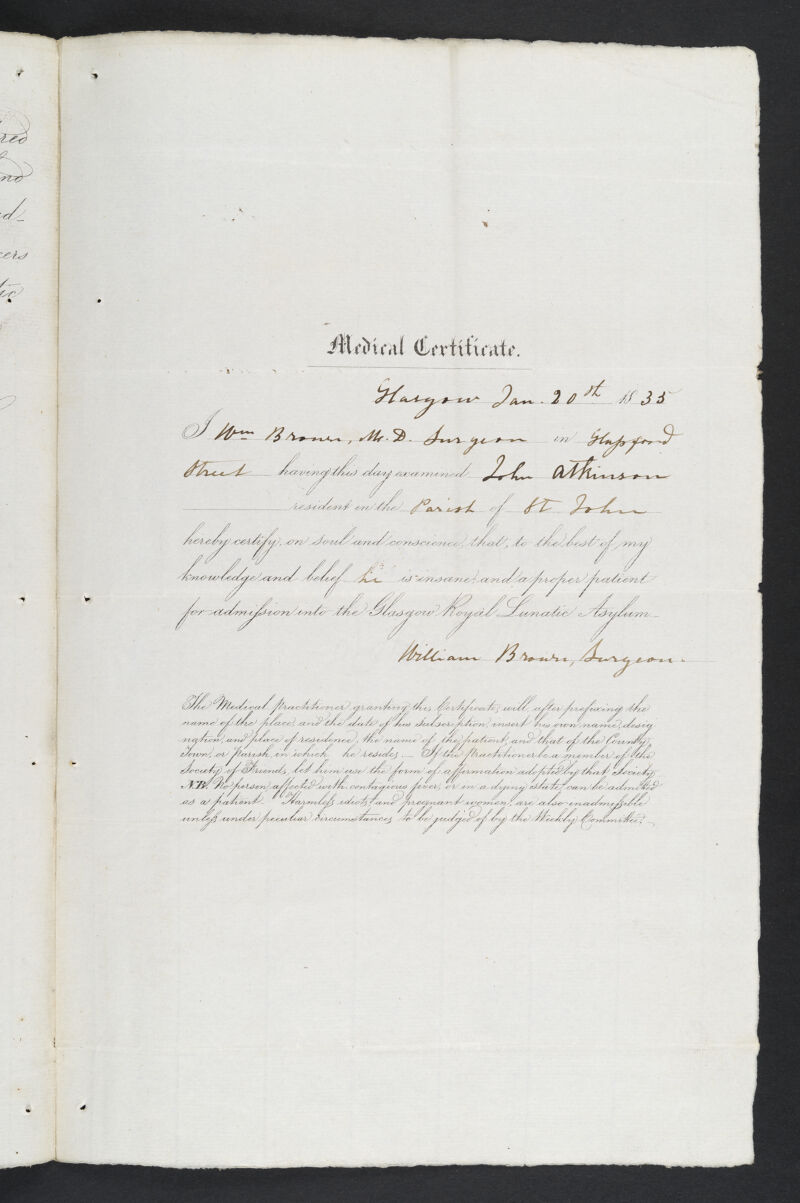 red
and
ed-
cers
tic
Medical Certificate.
Glasgow Jan. 20th 1835
I Wm Brown, M. D. Surgeon in
Street having this day examined John Atkinson
resident in the Parish of St John
hereby certify, on soul and conscience, that, to the best of my
knowledge and belief he is insane and a proper patient
for admission into the Glasgow Royal Lunatic Asylum
William Brown, Surgeon.
The Medical Practitioner granting this Certificate, will, after prefixing the
name of the place and the date of his subscription, insert his own name, desig
nation, and place of residence, the name of the patient, and that of the County,
Town, or Parish in which he resides.— If the Practitioner be a member of the
Society of Friends, let him use the form of affirmation adopted by that Society.
N.B. No person affected with contagious fever, or in a dying state, can be admitted
as a patient. Harmless idiots, and pregnant women, are also inadmissible
unless under peculiar circumstances, to be judged of by the Weekly Committee.—